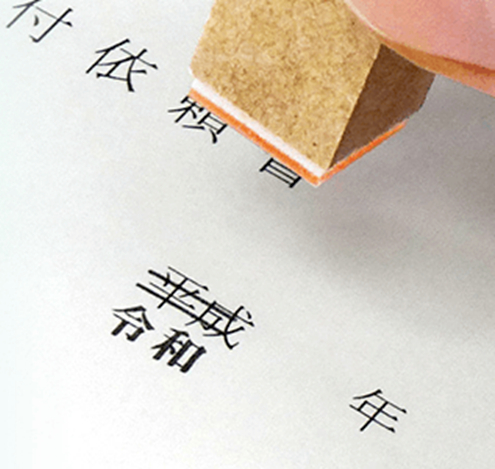 付依頼書
平成
令和 年